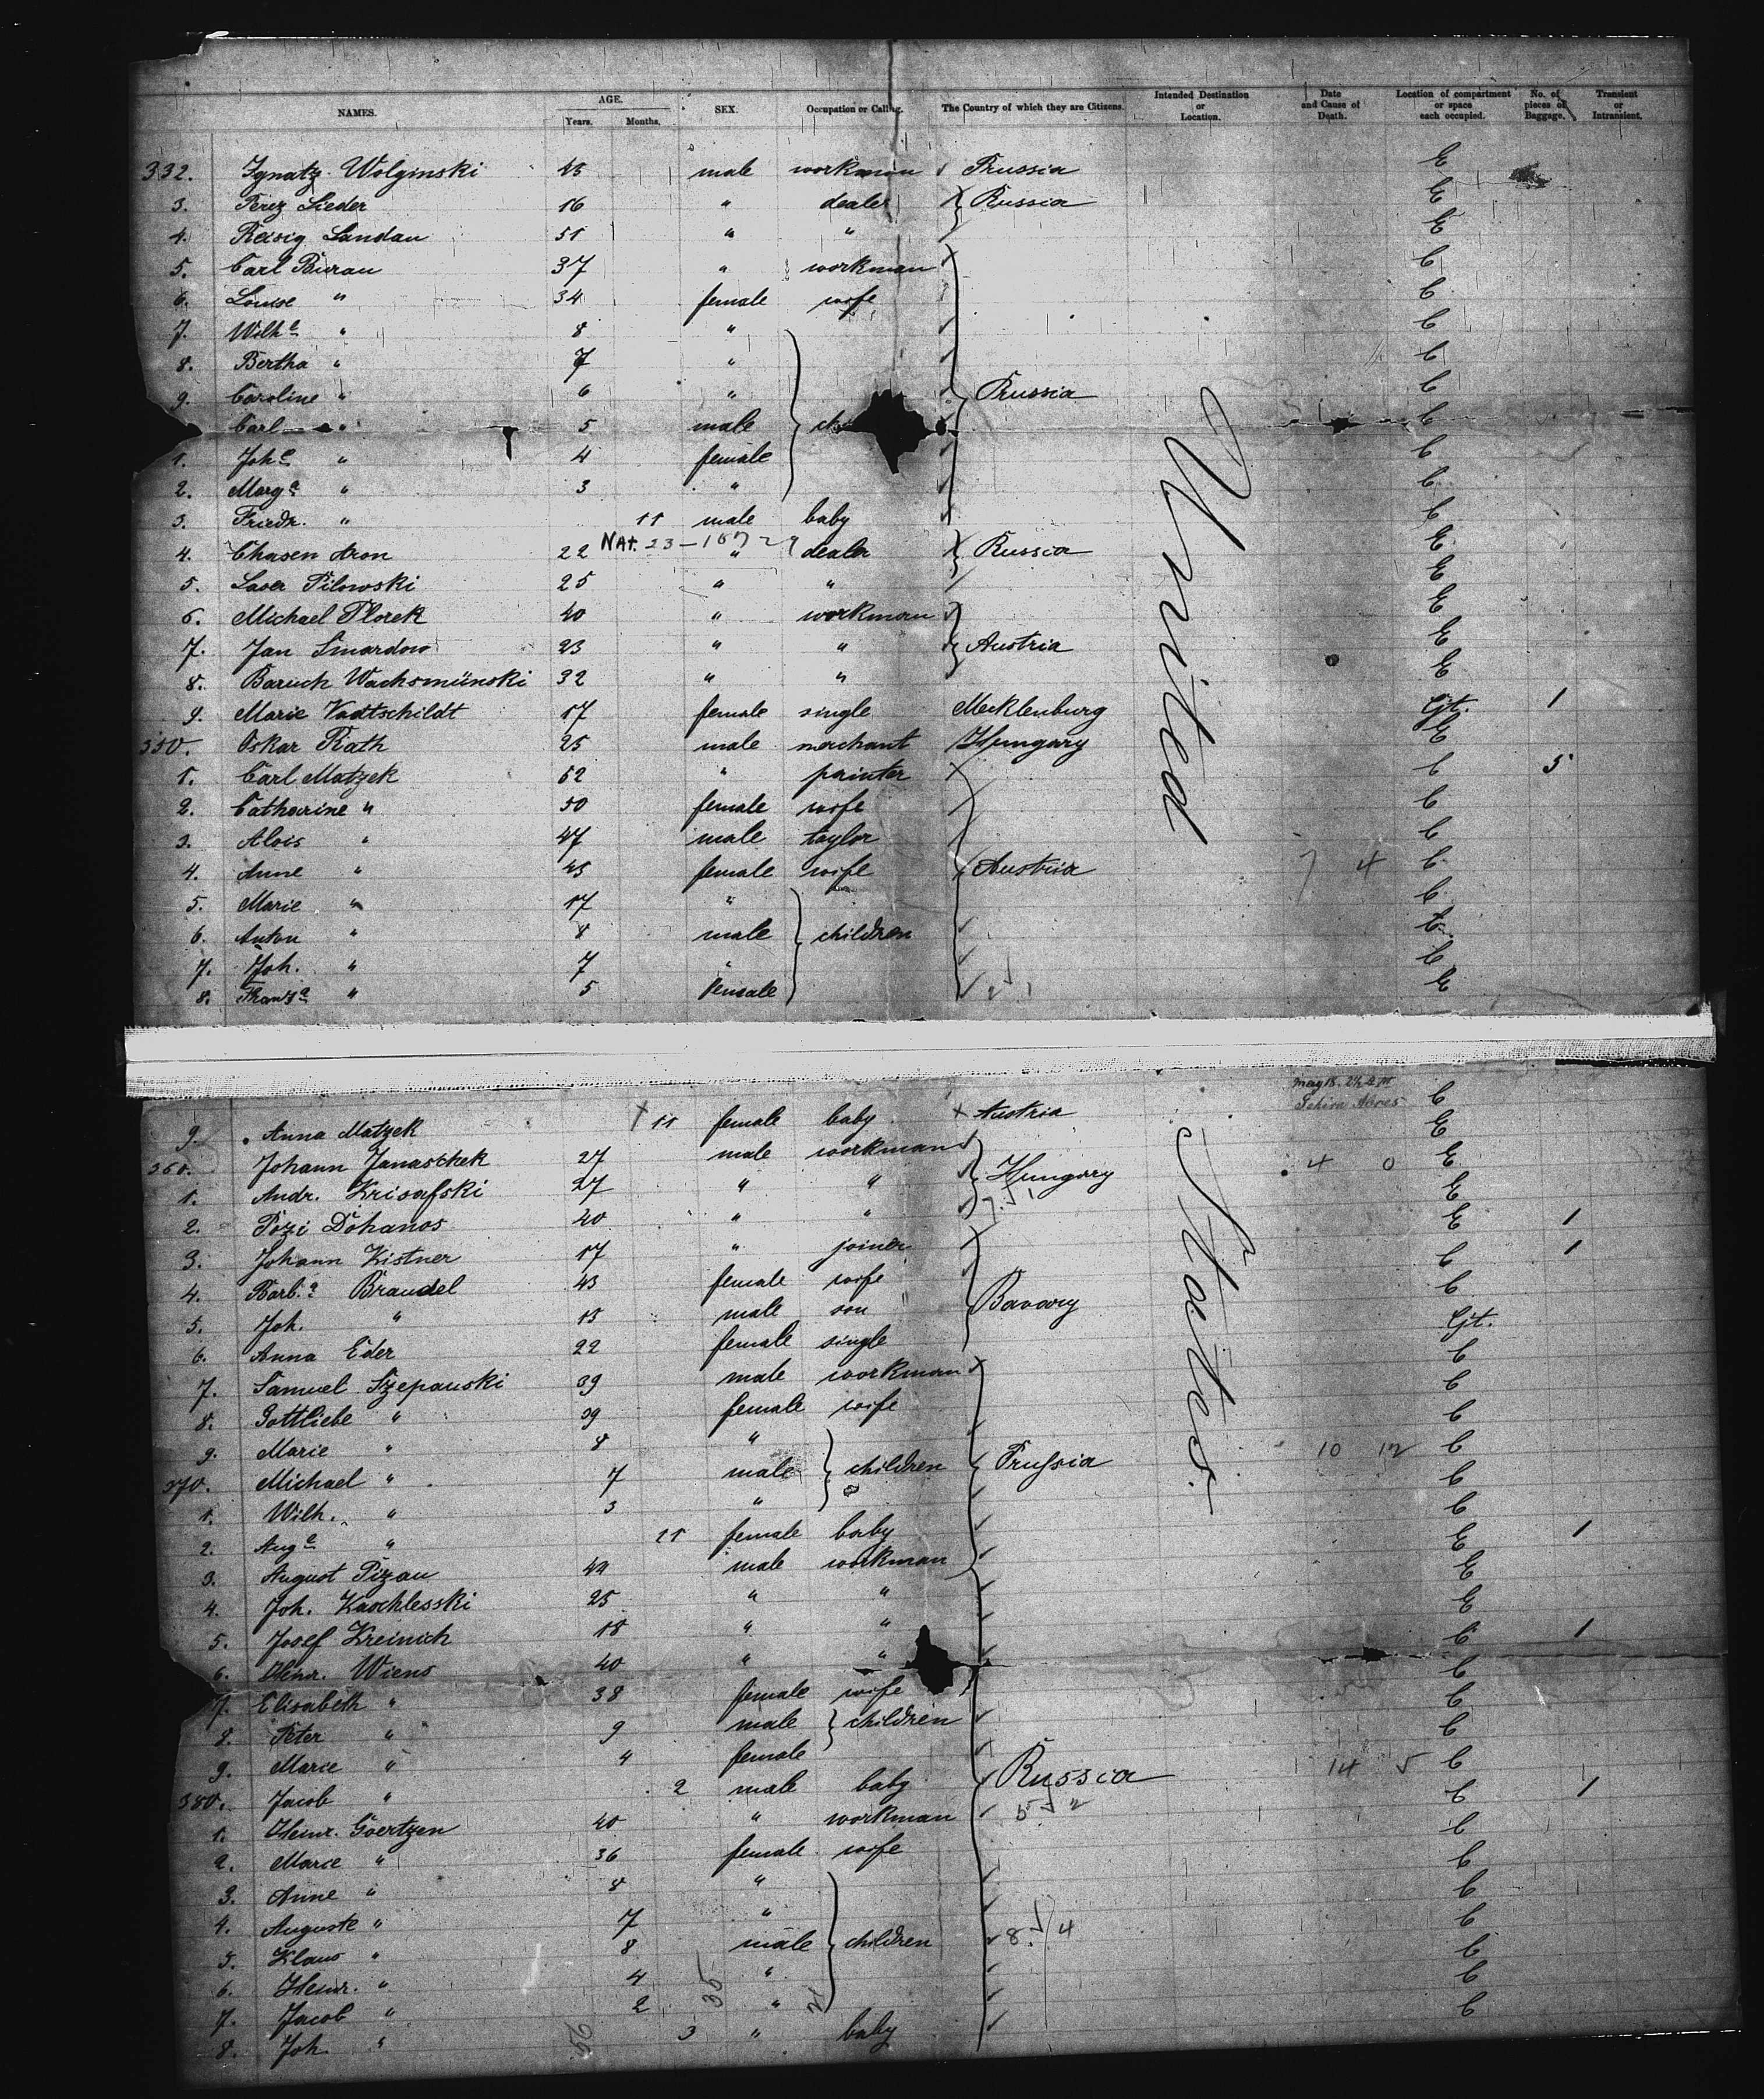 NAMES. AGE. Years. Months. SEX. Occupation or Calling. The Country of which they are Citizens. Intended Destination or Location. Date and Cause of Death. Location of compartment or space each occupied. No. of pieces of Baggage. Transient or Intransient.
332. Ignatz Wolginski 45 male workman Prussia E
3. Perez Lieder 16 " dealer Russia E
4. Reisig Landau 51 " " E
5. Carl Burau 37 " workman C
6. Louise " 34 female wife C
7. Wilhe " 8 " C
8. Bertha " 7 " C
9. Caroline " 6 " Prussia C
Carl " 5 male C
1. Johe " 4 female C
2. Marga " 3 " C
3. Friedr. " 11 male baby C
4. Chasen Aron 22 NAT. 23-16729 " dealer Russia E
5. Laser Pilowski 25 " " E
6. Michael Plorek 40 " workman E
7. Jan Smardow 23 " " Austria E
8. Baruch Wachsmünski 32 " " E
9. Marie Vadtschildt 17 female single Mecklenburg Cjt. 1
350. Oskar Rath 25 male merchant Hungary E
1. Carl Matzek 52 " painter C 5
2. Catharine " 50 female wife C
3. Alois " 47 male taylor C
4. Anne " 45 female wife Austria 7 4 C
5. Marie " 17 " C
6. Anton " 8 male children C
7. Joh. " 7 " C
8. Franza " 5 female E
United
May 18. 2½ A M
9. Anna Matzek 11 female baby Austria C
360. Johann Janaschek 27 male workman E
1. Andr. Krisafski 27 " " Hungary 4 0 E
2. Pozi Dohanos 40 " " E
3. Johann Kistner 17 " joiner E 1
4. Barb.a Brandel 43 female wife C 1
5. Joh. " 15 male son Bavary C
6. Anna Eder 22 female single Cjt.
7. Samuel Szepanski 39 male workman C
8. Gottliebe " 39 female wife C
9. Marie " 8 " C
370. Michael " 7 male children Prussia 10 12 C
1. Wilh. " 3 " C
2. Auge " 11 female baby C
3. August Pizau 49 male workman E 1
4. Joh. Kaschlesski 25 " " E
5. Josef Kreinich 18 " " E
6. Heinr. Wiens 40 " " C 1
7. Elisabeth " 38 female wife C
8. Peter " 9 male children C
9. Marie " 4 female C
380. Jacob " 2 male baby Russia 14 5 C
1. Heinr. Goertzen 40 " workman C 1
2. Marie " 36 female wife C
3. Anne " 8 " C
4. Auguste " 7 " C
5. Klaus " 8 male children 8 4 C
6. Heinr. " 4 " C
7. Jacob " 2 " C
8. Joh. " 3 " baby C
States.